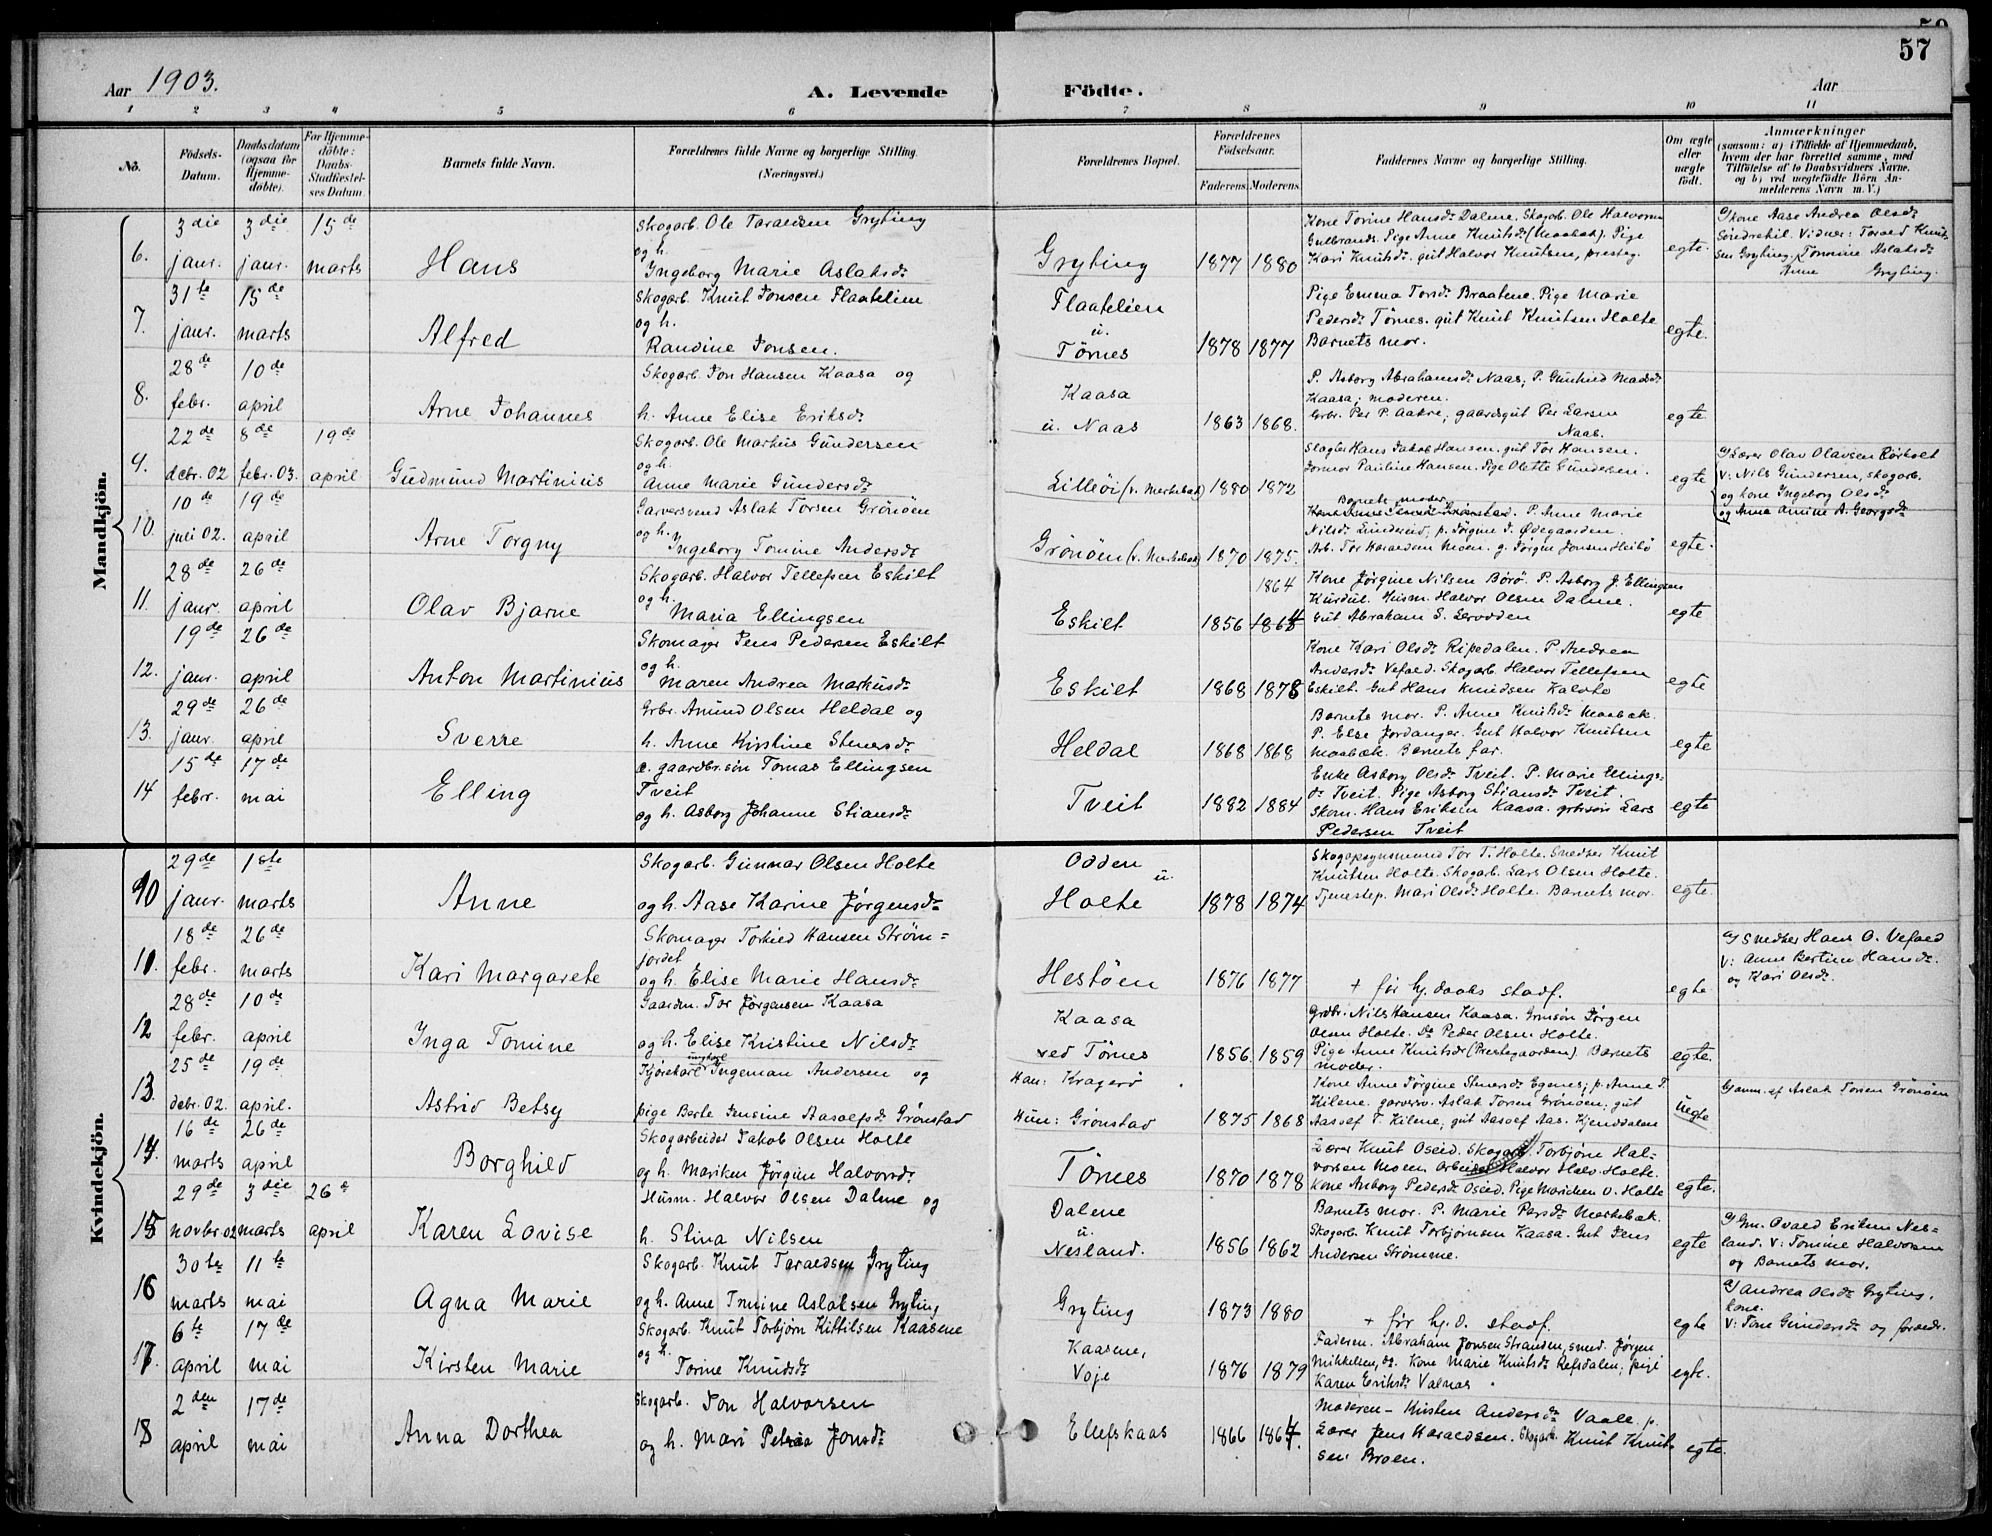 50
57
Aar 1903.
A. Levende Födte.
Aar
1 2 3 4 5 6 7 8 9 10 11
No.
Födsels-Datum.
Daabsdatum (ogsaa for Hjemme-döbte).
For Hjemme-döbte: Daabs-Stadfæstel-ses Datum.
Barnets fulde Navn.
Forældrenes fulde Navne og borgerlige Stilling. (Næringsvei.)
Forældrenes Bopæl.
Forældrenes Födselsaar.
Faderens. Moderens.
Faddernes Navne og borgerlige Stilling.
Om ægte eller uægte födt.
Anmærkninger
(saasom: a) i Tilfælde af Hjemmedaab, hvem der har forrettet samme, med Tilföielse af to Daabsvidners Navne, og b) ved uægtefödte Börn An-melderens Navn m. V.)
Mandkjön.
6. 3die jaur. 3die jaur. 15de marts
Hans
Skogarb. Ole Taraldsen Gryting
og h.
Ingeborg Marie Aslaksdr
Gryting 1877 1880
Kone Torine Hansdr Dalene. Skogarb. Ole Halvorsen
Gulbrands. Pige Anne Knutsdr (Moabæk). Pige
Kari Knutsdr. gut Halvor Knutsen, presteg.
egte
a/ kone Aase Andrea Olsdr
Söndrekil. Vidner: Tarald Knut-
sen Gryting, Tomine Aslaksdr
Gryting.
7. 31te jaur. 15de marts
Alfred
Skogarb. Knut Jonsen Flaatelien
og h.
Randine Jonsen.
Flaatelien
u.
Törnes 1878 1877
Pige Emma Torsdr Braatene. Pige Marie
Pedersdr Törnes. gut Knut Knutsen Holte
Barnets mor.
egte.
8. 28de febr. 10de april
Arne Johannes
Skogarb. Jon Hansen Kaasa og
h. Anne Elise Eriksdr
Kaasa
u. Naas 1863 1868.
P. Asborg Abrahamsdr Naas; P. Gunhild Madsdr
Kaasa; moderen.
Grbr. Per P. Aakre; gaardsgut Per Larsen
Naas.
egte
9. 22de decbr. 02 8de febr. 03. 19de april
Gudmund Martinius
Skogarb. Ole Markus Gundersen
og h.
Anne Marie Gundersdr
Lilleöi (v. Merkebæk) 1880 1872
Hans Jakob Hansen. gut Tor Hansen.
Jormor Pauline Hansen. Pige Olette Gundersen.
egte
a/ Lærer Olav Olavsen Rörholt
V: Nils Gundersen, skogarb.
og kone Ingeborg Olsdr
og Anna Amine A. Georgsdr
10. 10de juli 02. 19de april
Arne Torgny
Garversvend Aslak Torsen Grönöen
og h.
Ingeborg Tomine Andersdr
Grönöen (v. Merkebæk) 1870 1875.
Barnets moder
P. Anne Marie
Nilsdr Lindheid; p. Jörgine J. Ödegaarden.
Arb. Tor Haraldsen Moen. g. Jörgen Jonsen Heibö
egte.
11. 28de jaur. 26de april
Olav Bjarne
Skogarb. Halvor Tellefsen Eskilt
og h.
Maria Ellingsen
Eskilt 1856 1864
Kone Jörgine Nilsen Börö. P. Asborg J. Ellingsen
Kurdöl. Husm. Halvor Olsen Dalene.
Gut Abraham S.
egte
12. 19de jaur. 26de april
Anton Martinius
Skomager Jens Pedersen Eskilt
og h.
Maren Andrea Markusdr
Eskilt 1868 1878
Kone Kari Olsdr Ripedalen. P. Andrea
Andersdr Vefald. Skogarb. Halvor Tellefsen
Eskilt. Gut Hans Knudsen Kalvlo
egte
13. 29de jaur. 26de april
Sverre
Grbr. Amund Olsen Heldal og
h. Anne Kirstine Stenersdr
Heldal 1868 1868
Barnets mor. P. Anne Knutsdr Moabæk.
P. Else Jordanger. Gut Halvor Knutsen
Moabæk. Barnets far.
egte
14 15de febr. 17de mai
Elling
e. gaardbr.sön Tomas Ellingsen
Tveit
og h. Asborg Johanne Stiansdr
Tveit 1882 1884
Enke Asborg Olsdr Tveit. P. Marie Ellings-
dr Tveit. Pige Asborg Stiansdr Tveit.
Skom. Hans Eriksen Kaasa. grbrsön Lars
Pedersen Tveit
egte
Kvindekjön.
10 29de jaur. 1ste marts
Anne
Skogarb. Gunnar Olsen Holte
og h. Aase Karine Jørgensdr
Odden
u.
Holte 1878 1874
Skogopsynsmand Tor T. Holte. Snedker Knut
Knutsen Holte. Skogarb. Lars Olsen Holte.
Tjenestep. Mari Olsdr Holte. Barnets mor.
egte
11. 18de febr. 26de marts
Kari Margarete
Skomager Torkild Hansen Ström=
jordet
og h. Elise Marie Hansdr
Hestöen 1876 1877
+ för hj. daabs stadf.
egte
a/ Snedker Hans O. Vefald
V: Anne Bertine Hansdr.
og Kari Olsdr.
12 28de febr. 10de april
Inga Tomine
Gaardm. Tor Jörgensen Kaasa
og h. Elise Kristine Nilsdr
Kaasa
ved Törnes 1856. 1859
Grdbr. Nils Hansen Kaasa. Grmsön Jörgen
Olsen Holte. do Peder Olsen Holte.
Pige Anne Knutsdr (Prestegaarden). Barnets
moder.
egte.
13. 25de decbr. 02. 19de april.
Astrid Betsy
ungkarl
Kjörekarl Ingeman Andersen og
pige Berte Jensine Aasolfsdr Grönstad
Han: Kragerö
Hun: Grönstad 1875 1868
Kone Anne Jörgine Stenersdr Egenes; p. Anne T.
Kilene. garversv. Aslak Torsen Grönöen; gut
Aasolf T. Kilene; gut Aasolf Aas. Kjenddalen
uegte
a/ anm. af Aslak Torsen Grönöen
14. 16de marts 26de april
Borghild
Skogarbeider Jakob Olsen Holte
og h. Mariken Jörgine Halvorsdr
Törnes 1870 1878
Lærer Knut Oseid. Skogarb. Torbjörn Hal-
vorsen Moen. Arbeider Halvor Halv. Holte.
Kone Anborg Pedersdr Oseid. Pige Mariken O. Holte
egte.
15 29de novbr. 02 3die marts 26de april
Karen Lovise
Husm. Halvor Olsen Dalene og
h. Elina Nilsen
Dalene
u.
Nesland. 1856 1862
Barnets mor. P. Marie Persdr Merkebæk.
Skogarb. Knut Torbjörnsen Kaasa. Gut Jens
Andersen Strömme.
egte
a/ Gm. Ovald Eriksen Nes=
land. V: Tomine Halvorsen
og Barnets mor.
16 30te marts 11te mai
Agna Marie
Skogarb. Knut Taraldsen Gryting
og h. Anne Tomine Aslaksen Gryting
Gryting 1873 1880
+ för hj.d. stadf.
egte
a/ Andrea Olsdr Gryting,
kone.
V: Tone Gundersdr og foræld.
17. 6te april 17de mai
Kirsten Marie
Skogarb. Knut Torbjörn Kittilsen Kaasene
og h.
Torine Knudsdr
Kaasene,
Voje 1876 1879
Faderen. Abraham Jonsen Stranden, smed. Jörgen
Mikkelsen, do. Kone Marie Knutsdr Refsdalen; pige
Karen Eriksdr Valnas
egte.
18 2den april 17de mai
Anna Dorthea
Skogarb. Jon Halvorsen
og h. Mari Petrea Jonsdr
Ellefskaas 1866 1864.
Moderen - Kirsten Andersdr Vaale. p.
Lærer Jens Haraldsen. Skogarb. Knut Knut-
sen Broen.
egte.